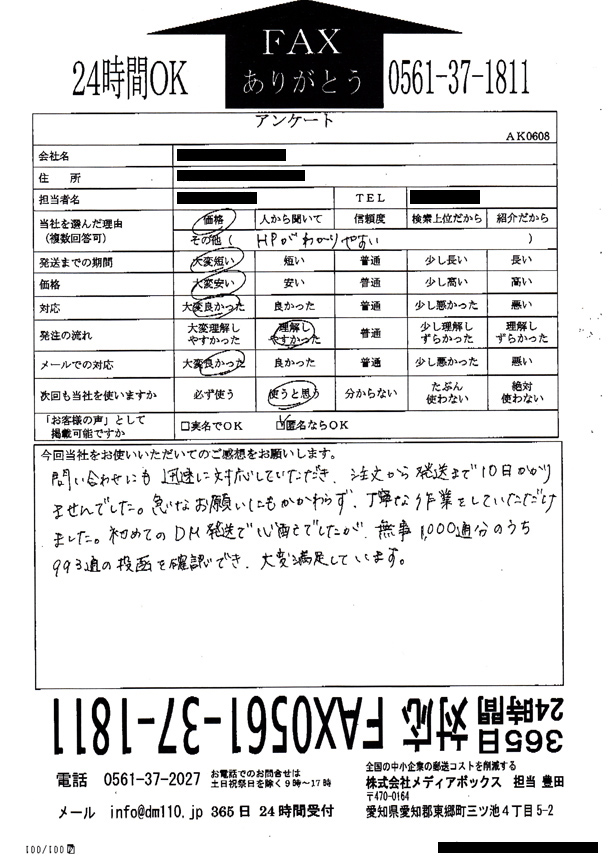 FAX
ありがとう
24時間OK
0561-37-1811
アンケート
AK0608
会社名
住　所
担当者名 TEL
当社を選んだ理由 価格 人から聞いて 信頼度 検索上位だから 紹介だから
(複数回答可) その他 ( HPがわかりやすい )
発送までの期間 大変短い 短い 普通 少し長い 長い
価格 大変安い 安い 普通 少し高い 高い
対応 大変良かった 良かった 普通 少し悪かった 悪い
発注の流れ 大変理解しやすかった 理解しやすかった 普通 少し理解しずらかった 理解しずらかった
メールでの対応 大変良かった 良かった 普通 少し悪かった 悪い
次回も当社を使いますか 必ず使う 使うと思う 分からない たぶん使わない 絶対使わない
「お客様の声」として
掲載可能ですか □実名でOK ☑匿名ならOK
今回当社をお使いいただいてのご感想をお願いします。
問い合わせにも迅速に対応していただき、注文から発送まで10日かかり
ませんでした。急なお願いにもかかわらず、丁寧な作業をしていただけ
ました。初めてのDM発送で心配でしたが、無事1,000通分のうち
993通の投函を確認でき、大変満足しています。
365日24時間 対応 FAX0561-37-1811
電話 0561-37-2027 お電話でのお問合せは
土日祝祭日を除く9時～17時
メール info@dm110.jp 365日 24時間受付
全国の中小企業の郵送コストを削減する
株式会社メディアボックス 担当 豊田
〒470-0164
愛知県愛知郡東郷町三ツ池4丁目5-2
100/100